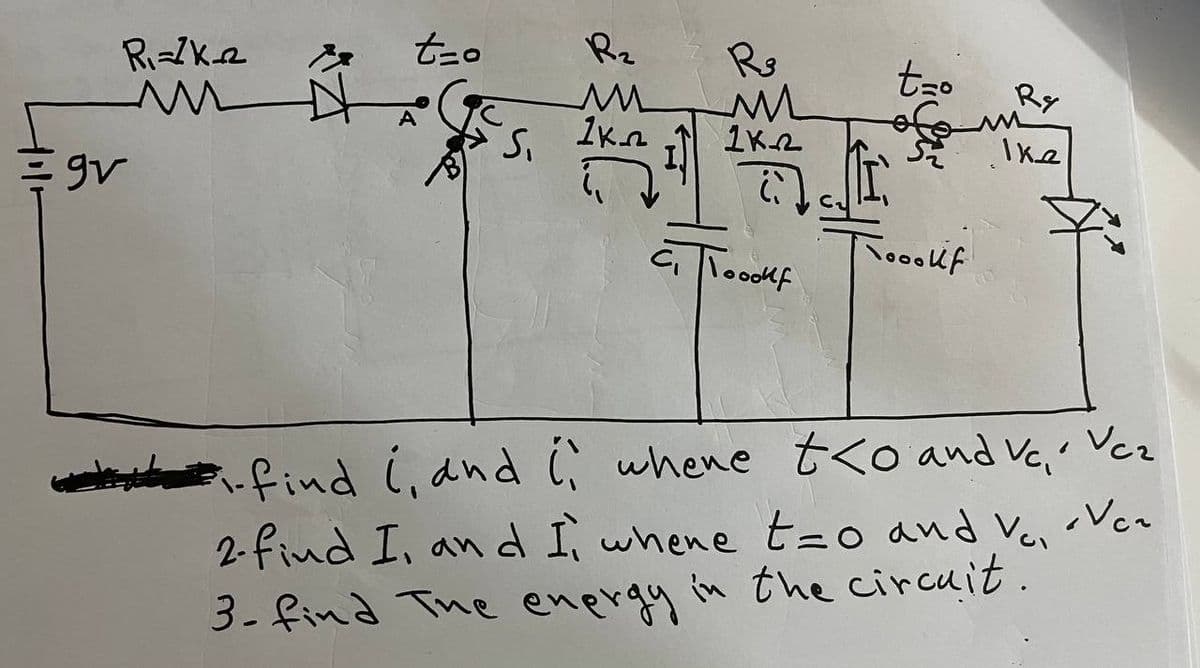 R₁=1KΩ
t=0
R₂
R₃
t=0
R₄
A
C
S₁
B
1KΩ
1KΩ
S₂
1KΩ
9v
i₁
I₁
i₁`
C₂
I₁`
C₁
1000uf
1000uf
1-find i₁ and i₁` whene t<0 and Vc₁, Vc₂
2-find I₁ and I₁` whene t=0 and Vc₁, Vc₂
3- find The energy in the circuit.